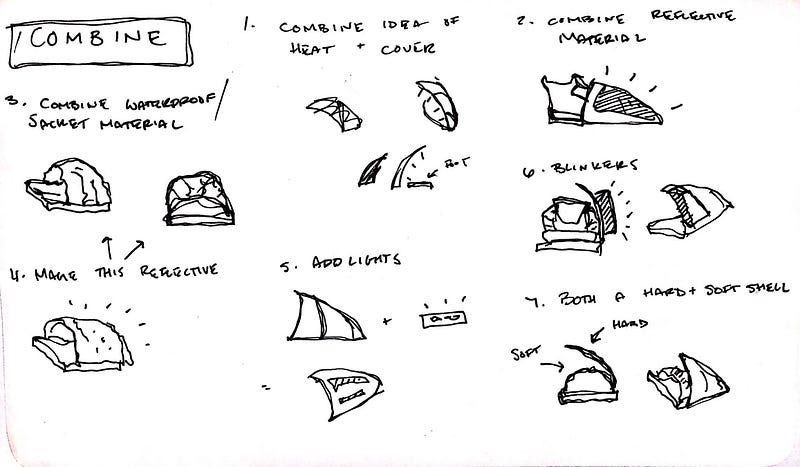 COMBINE
1. COMBINE IDEA OF
HEAT + COVER
HOT
2. COMBINE REFLECTIVE
MATERIAL
3. COMBINE WATERPROOF/
JACKET MATERIAL
4. MAKE THIS REFLECTIVE
5. ADD LIGHTS
+
=
6. BLINKERS
7. BOTH A HARD + SOFT SHELL
HARD
SOFT